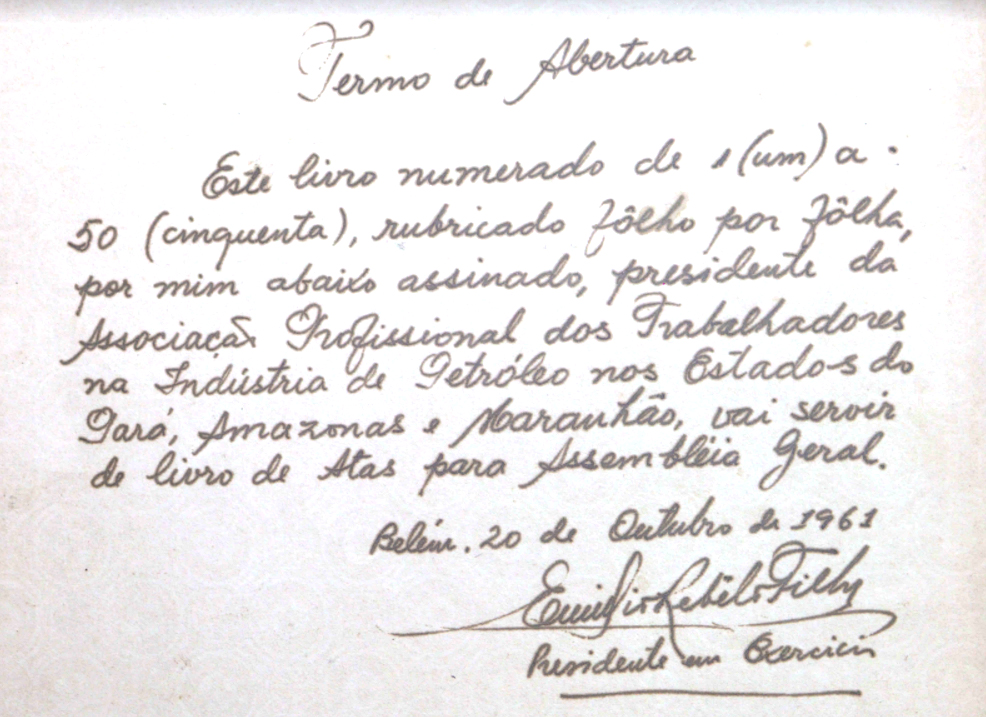 Termo de Abertura
Este livro numerado de 1 (um) a
50 (cinquenta), rubricado fôlho por fôlha,
por mim abaixo assinado, presidente da
Associação Profissional dos Trabalhadores
na Indústria de Petróleo nos Estados do
Pará, Amazonas e Maranhão, vai servir
de livro de Atas para Assembléia Geral.
Belém. 20 de Outubro de 1961
Rebêlo Filho
Presidente em Exercicio